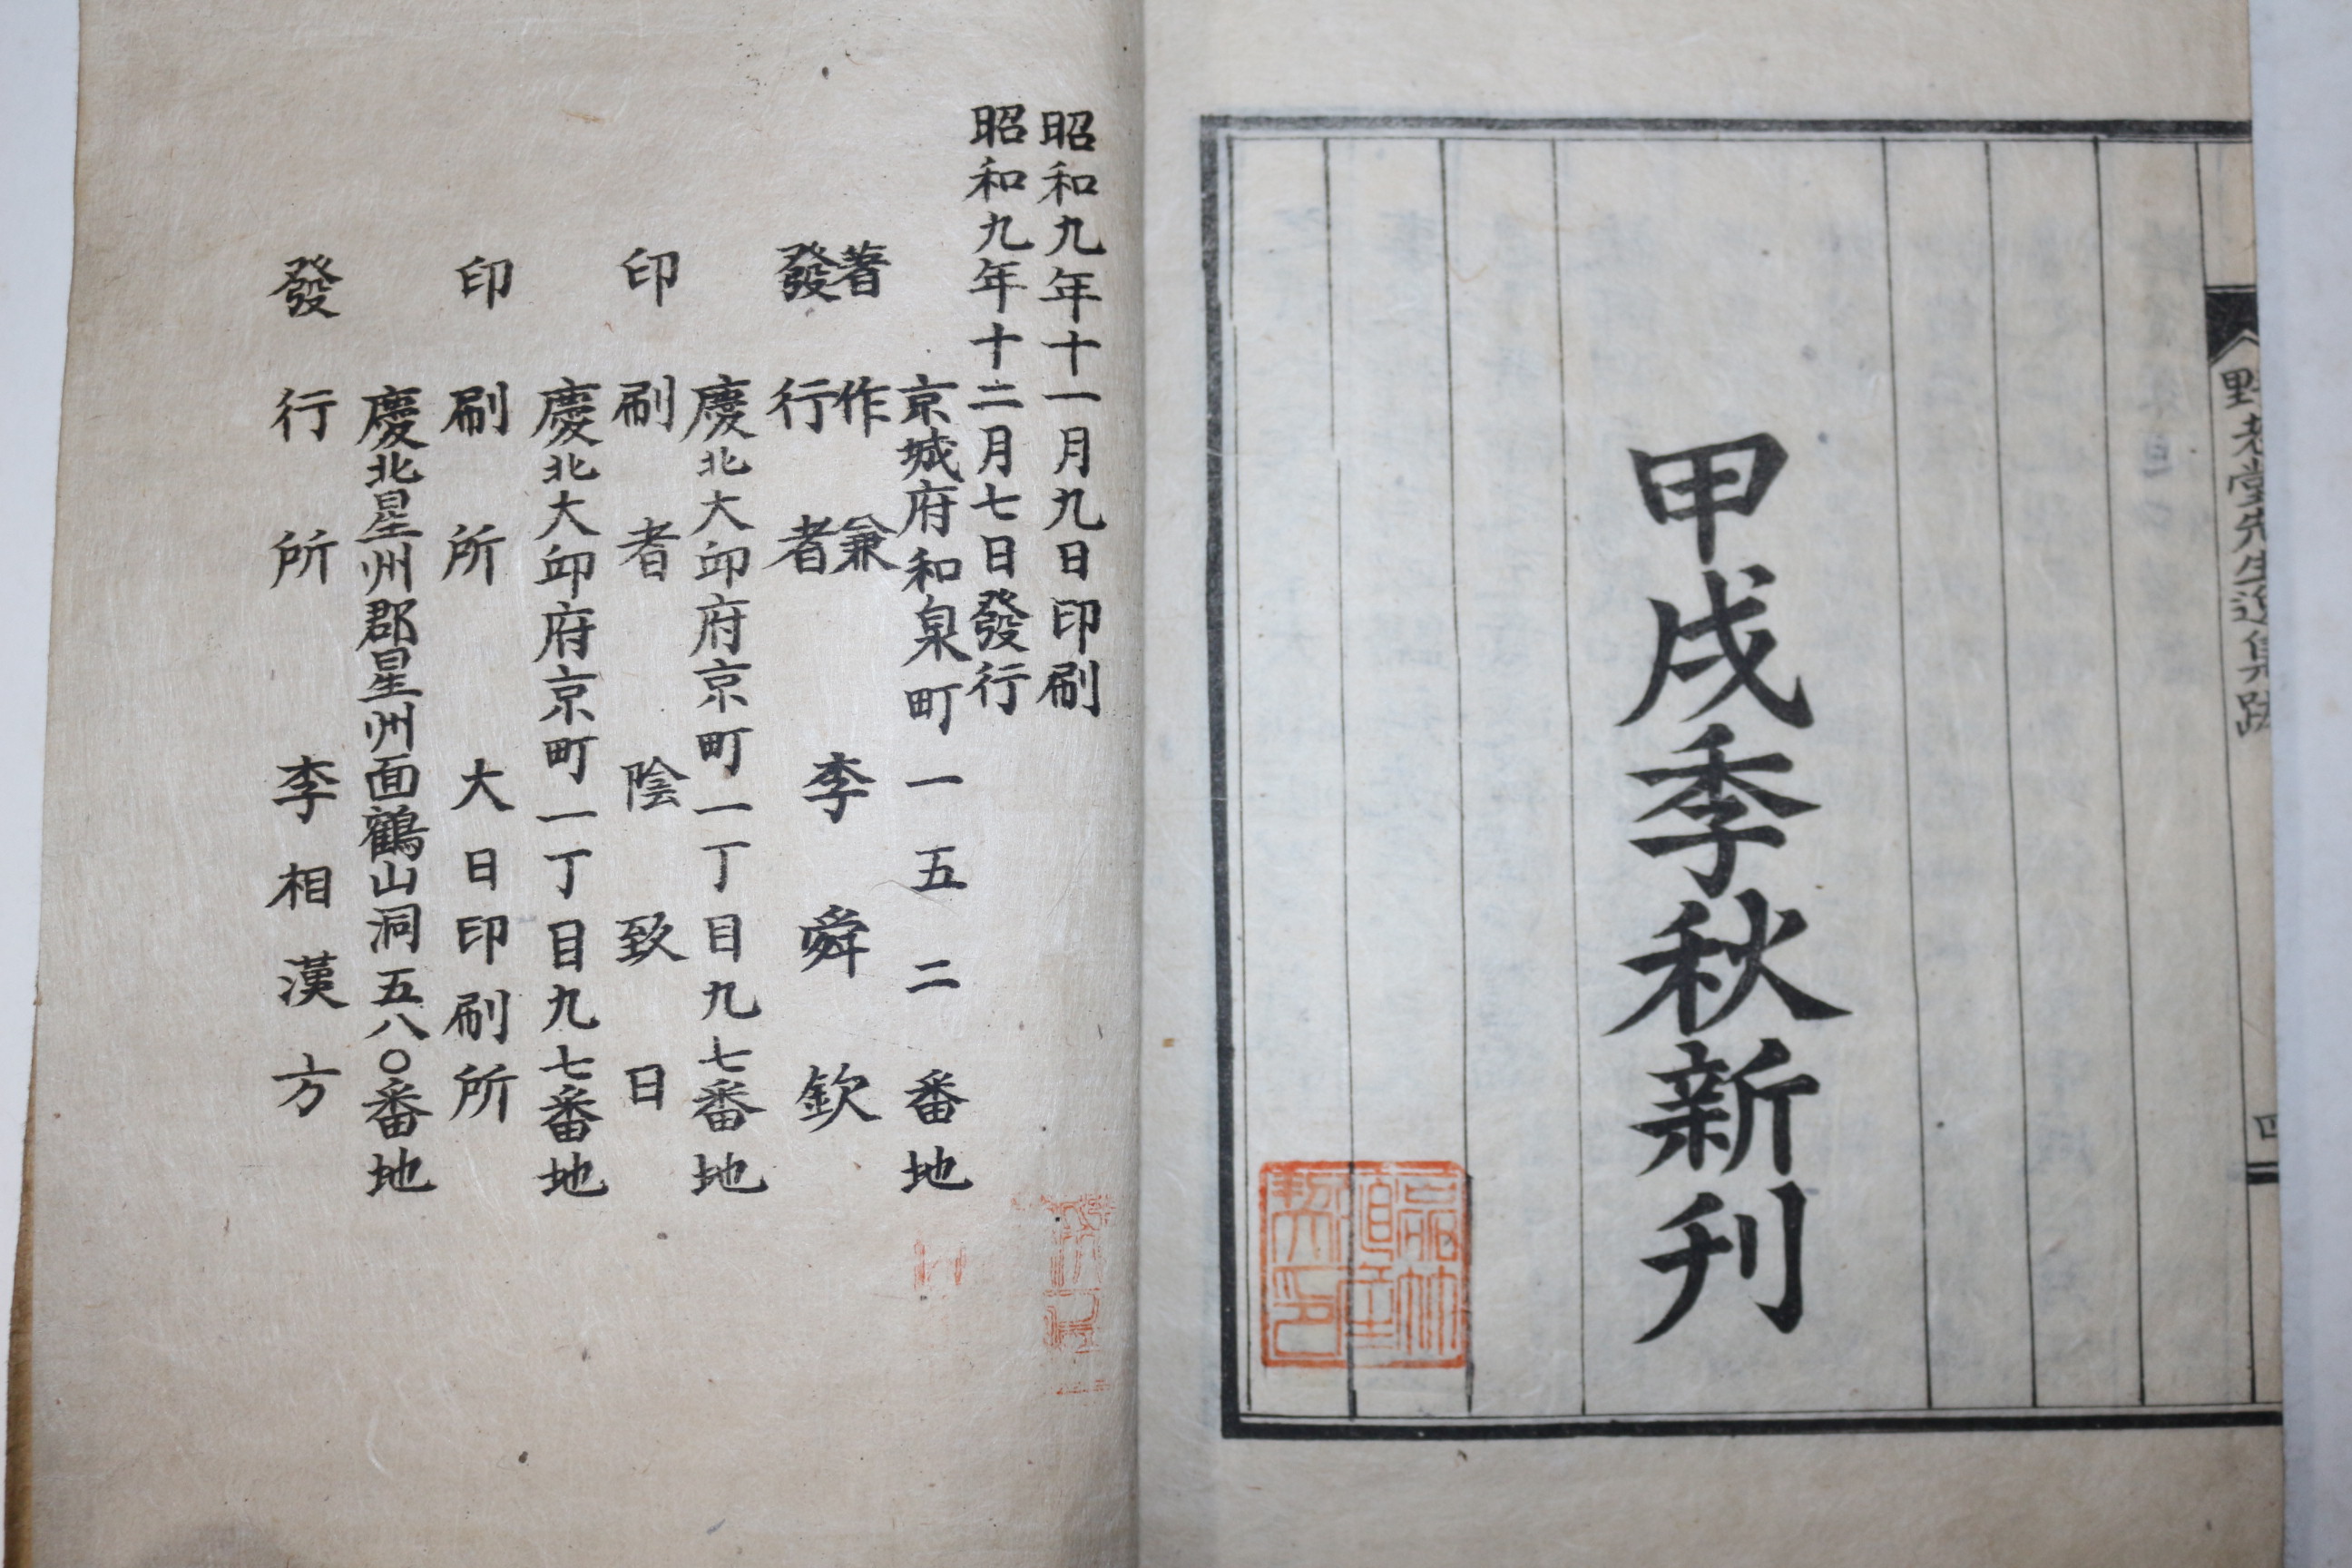 野老堂先生
甲戌季秋新刊
昭和九年十一月九日印刷
昭和九年十二月七日發行
京城府和泉町一五二番地
著作兼
發行者 李舜欽
慶北大邱府京町一丁目九七番地
印刷者 陰致日
慶北大邱府京町一丁目九七番地
印刷所 大日印刷所
慶北星州郡星州面鶴山洞五八〇番地
發行所 李相漢方